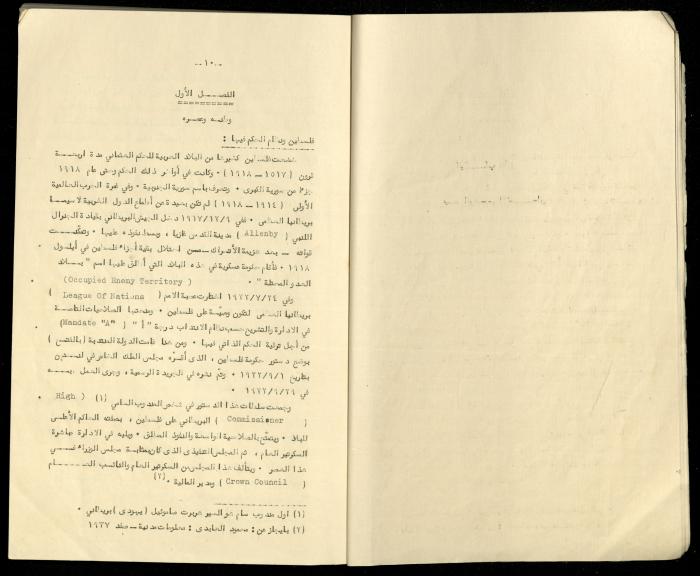 -١٠-
الفصل الأول
وطنه وعصره
فلسطين ونظام الحكم فيها :
خضعت فلسطين كغيرها من البلاد العربية للحكم العثماني مدة اربعة
قرون (١٥١٧ – ١٩١٨) ٠ وكانت في أواخر ذلك الحكم وحتى عام ١٩١٨
جزءا من سورية الكبرى ٠ وتعرف باسم سورية الجنوبية ٠ وفي فترة الحرب العالمية
الأولى (١٩١٤ – ١٩١٨) لم تكن بعيدة عن أطماع الدول الغربية لا سيما
بريطانيا العظمى ٠ ففي ١٩١٧/١٢/٩ دخل الجيش البريطاني بقيادة الجنرال
اللنبي (Allenby) مدينة القدس غازيا ، وبسط نفوذه عليها ٠ وتمكنت
قواته – بعد هزيمة الأتراك – من احتلال بقية أجزاء فلسطين في أيلول
١٩١٨ ٠ فأقام حكومة عسكرية في هذه البلاد التي أطلق عليها اسم " بلاد
العدو المحتلة " ٠ (Occupied Enemy Territory)
وفي ١٩٢٢/٧/٢٤ اختارت عصبة الامم (League Of Nations)
بريطانيا العظمى لتكون وصيّة على فلسطين ٠ ومنحتها الصلاحيات التامة
في الادارة والتشريع حسب نظام الانتداب درجة " أ " (Mandate "A")
من أجل ترقية الحكم الذاتي فيها ٠ ومن هنا قامت الدولة المنتدبة (بالفتح)
بوضع دستور حكومة فلسطين ، الذى أقرّه مجلس الملك الخاص في لندن
بتاريخ ١٩٢٢/٩/١ ٠ وتمّ نشره في الجريدة الرسمية ، وجرى العمل به
في ١٩٢٢/٩/٢٩ ٠
وجمعت سلطات هذا الدستور في شخص المندوب السامي (١) (High
Commissioner) البريطاني على فلسطين ، بصفته الحاكم الأعلى
للبلاد ٠ ويتمتع بالصلاحية الواسعة والنفوذ المطلق ٠ ويليه في الادارة مباشرة
السكرتير العام ، ثم المجلس التنفيذى الذى كان بمثابة مجلس الوزراء في
هذا العصر ٠ ويتألف هذا المجلس من السكرتير العام والنائب العام
(Crown Council) ومدير المالية ٠ (٢)
(١) أول مندوب سام هو السير هربرت صموئيل (يهودى) بريطاني ٠
(٢) بايجاز عن : محمود العابدى : معلومات مدنية – صفد ١٩٣٧